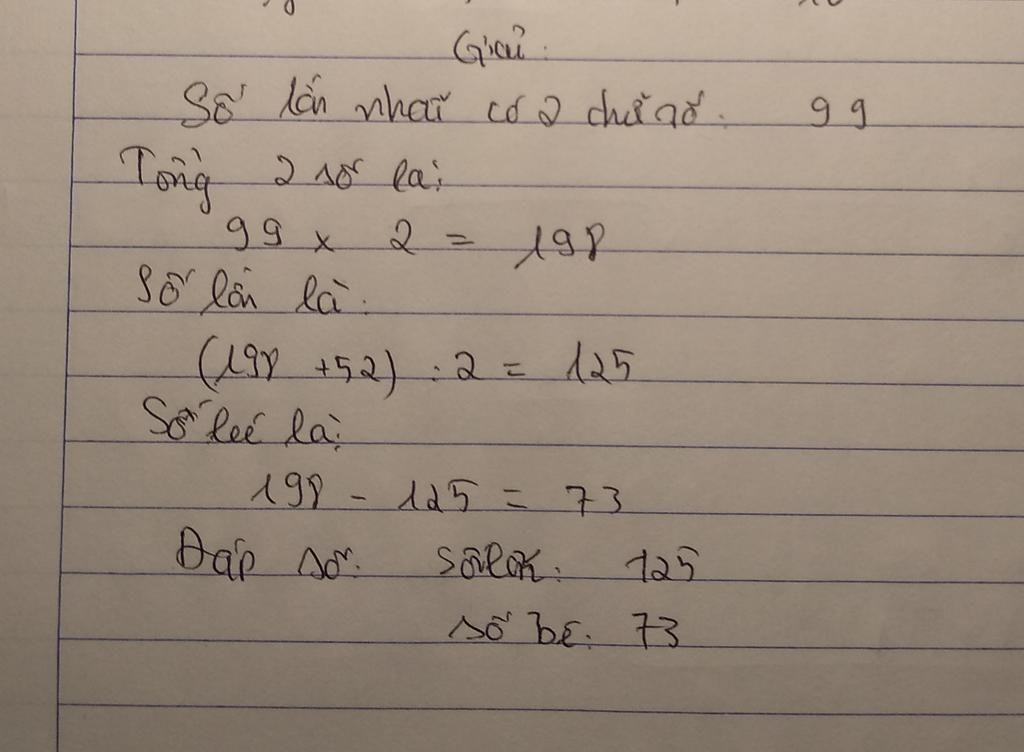 Giải:
Số lớn nhất có 2 chữ số: 99
Tổng 2 số là:
99 x 2 = 198
Số lớn là:
(198 + 52) : 2 = 125
Số bé là:
198 - 125 = 73
Đáp số: số lớn: 125
số bé: 73